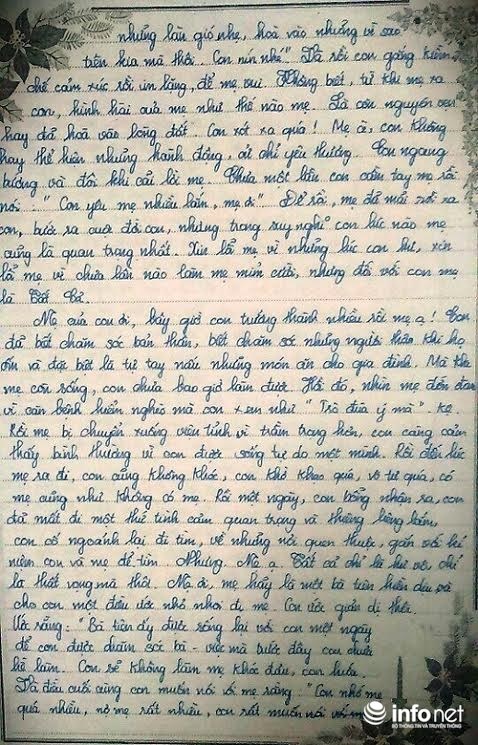 những làn gió nhẹ, hoà vào những vì sao
trên kia mà thôi. Con nín nhé". Và rồi con gắng kiềm
chế cảm xúc rồi im lặng, để mẹ vui. Không biết, từ khi mẹ xa
con, hình hài của mẹ như thế nào mẹ. Là còn nguyên vẹn
hay đã hoà vào lòng đất. Con xót xa quá! Mẹ à, con không
hay thể hiện những hành động, cử chỉ yêu thương. Con ngang
bướng và đôi khi cãi lời mẹ. Chưa một lần con cầm tay mẹ rồi
nói: "Con yêu mẹ nhiều lắm, mẹ ơi". Để rồi, mẹ đã mãi rời xa
con, bước ra cuộc đời con, nhưng trong suy nghĩ con lúc nào mẹ
cũng là quan trọng nhất. Xin lỗi mẹ vì những lúc con hư, xin
lỗi mẹ vì chưa lần nào làm mẹ mỉm cười, nhưng đối với con mẹ
là Tất Cả.
Mẹ của con ơi, bây giờ con trưởng thành nhiều rồi mẹ ạ! Con
đã biết chăm sóc bản thân, biết chăm sóc những người thân khi họ
ốm và đặc biệt là tự tay nấu những món ăn cho gia đình. Mà khi
mẹ còn sống, con chưa bao giờ làm được. Hồi đó, nhìn mẹ đớn đau
vì căn bệnh hiểm nghèo mà con xem như "Trò đùa ý mà". Kệ.
Rồi mẹ bị chuyển xuống viện tỉnh vì trầm trọng hơn, con càng cảm
thấy bình thường vì con được sống tự do một mình. Rồi đến lúc
mẹ ra đi, con cũng không khóc, con khờ khạo quá, vô tư quá, có
mẹ cũng như không có mẹ. Rồi một ngày, con bỗng nhận ra, con
đã mất đi một thứ tình cảm quan trọng và thiêng liêng lắm,
con cố ngoảnh lại đi tìm, về những nơi quen thuộc, gắn với kỉ
niệm con và mẹ để tìm. Nhưng. Mẹ ạ. Tất cả chỉ là hư vô, chỉ
là thất vọng mà thôi. Mẹ ơi, mẹ hãy là một bà tiên hiền dịu và
cho con một điều ước nhỏ nhoi đi mẹ. Con ước giản dị thôi.
Ước rằng: "Bà tiên ấy được sống lại với con một ngày
để con được chăm sóc bà - việc mà trước đây con chưa
hề làm. Con sẽ không làm mẹ khóc đâu, con hứa.
Và điều cuối cùng con muốn nói với mẹ rằng: "Con nhớ mẹ
quá nhiều, nợ mẹ rất nhiều, con rất muốn nói với mẹ
infonet
BỘ THÔNG TIN VÀ TRUYỀN THÔNG